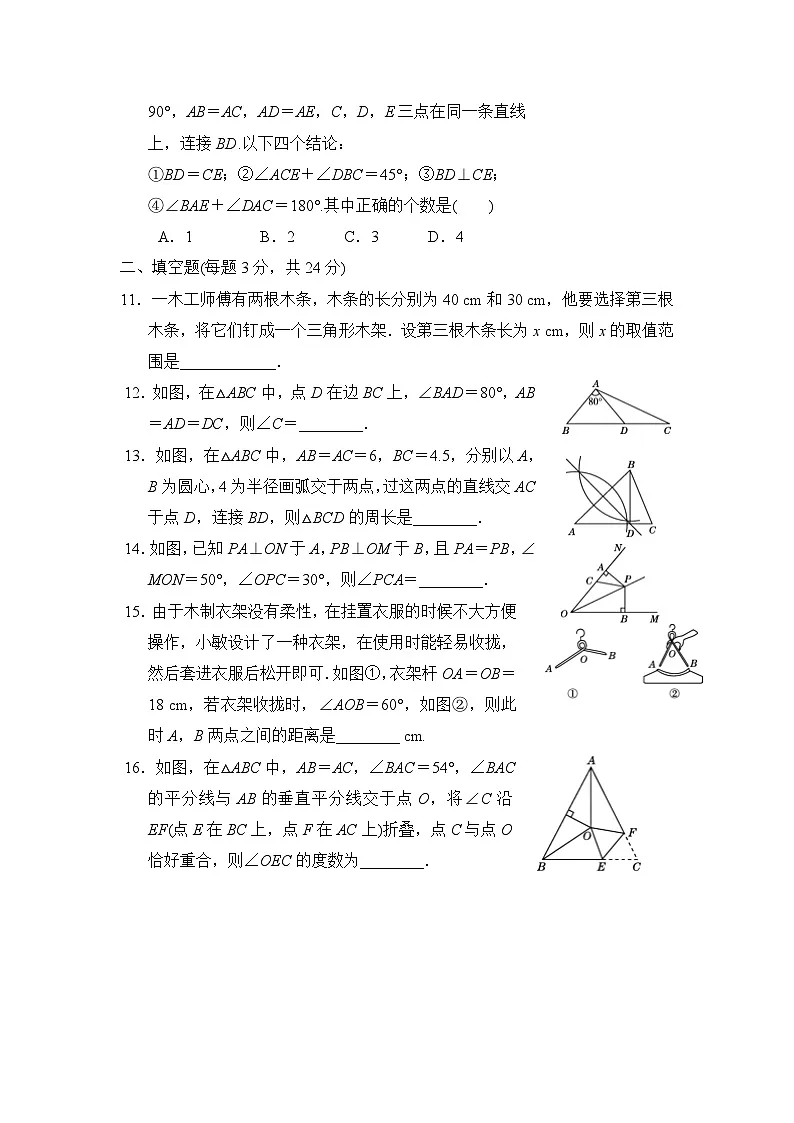 90°,AB=AC,AD=AE,C,D,E三点在同一条直线
上,连接BD.以下四个结论:
①BD=CE;②∠ACE+∠DBC=45°;③BD⊥CE;
④∠BAE+∠DAC=180°.其中正确的个数是(  )
A.1 B.2 C.3 D.4
二、填空题(每题3分,共24分)
11.一木工师傅有两根木条,木条的长分别为40 cm和30 cm,他要选择第三根
木条,将它们钉成一个三角形木架.设第三根木条长为x cm,则x的取值范
围是____________.
12.如图,在△ABC中,点D在边BC上,∠BAD=80°,AB
=AD=DC,则∠C=________.
A
80°
B D C
13.如图,在△ABC中,AB=AC=6,BC=4.5,分别以A,
B为圆心,4为半径画弧交于两点,过这两点的直线交AC
于点D,连接BD,则△BCD的周长是________.
B
A D C
14.如图,已知PA⊥ON于A,PB⊥OM于B,且PA=PB,∠
MON=50°,∠OPC=30°,则∠PCA=________.
N
A
C P
O B M
15.由于木制衣架没有柔性,在挂置衣服的时候不大方便
操作,小敏设计了一种衣架,在使用时能轻易收拢,
然后套进衣服后松开即可.如图①,衣架杆OA=OB=
18 cm,若衣架收拢时,∠AOB=60°,如图②,则此
时A,B两点之间的距离是________ cm.
A O B
①
O
A B
②
16.如图,在△ABC中,AB=AC,∠BAC=54°,∠BAC
的平分线与AB的垂直平分线交于点O,将∠C沿
EF(点E在BC上,点F在AC上)折叠,点C与点O
恰好重合,则∠OEC的度数为________.
A
O F
B E C